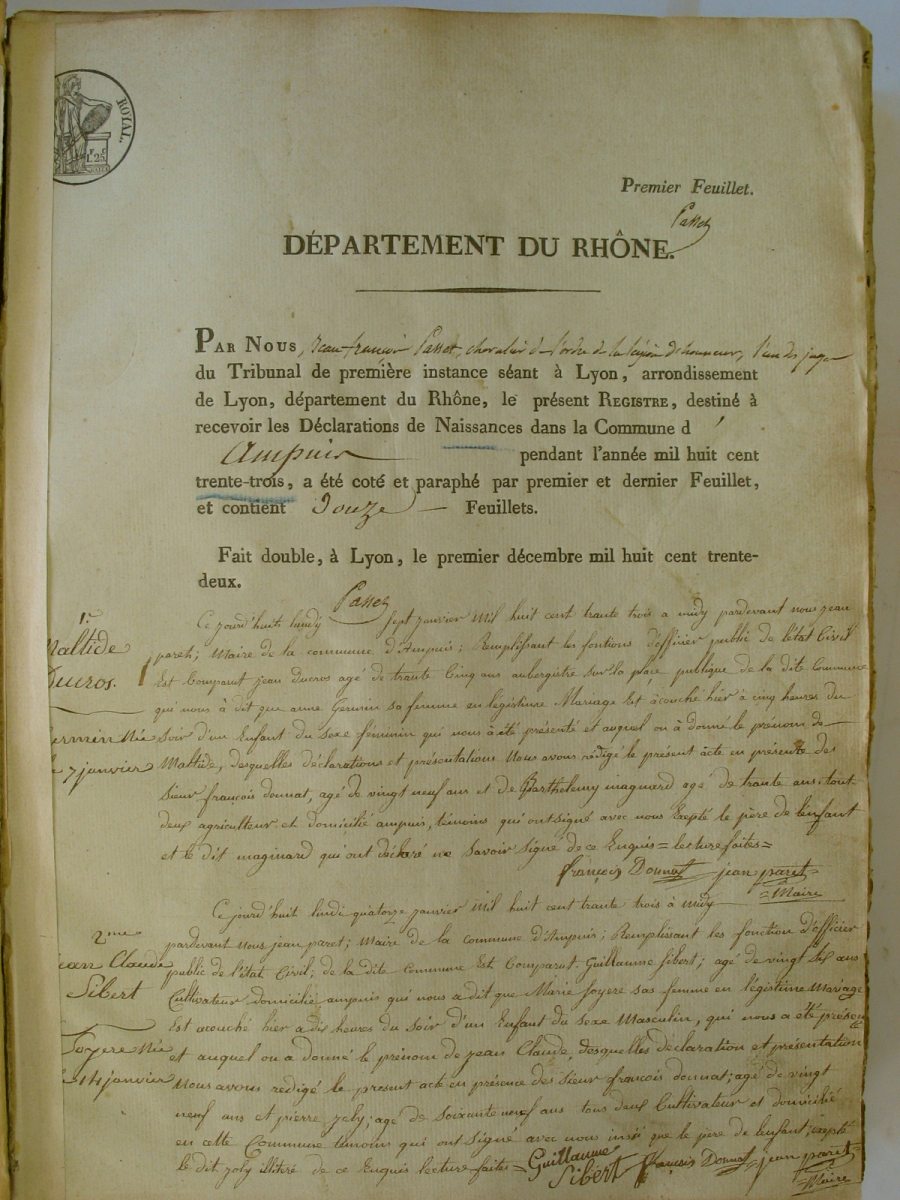 ROYAL.
F. C.
1. 25.
Premier Feuillet.
Passet
DÉPARTEMENT DU RHÔNE.
PAR NOUS, Jean françois Passet, chevalier de l'ordre de la légion d'honneur, l'un des juges
du Tribunal de première instance séant à Lyon, arrondissement
de Lyon, département du Rhône, le présent REGISTRE, destiné à
recevoir les Déclarations de Naissances dans la Commune d'
Ampuis pendant l'année mil huit cent
trente-trois, a été coté et paraphé par premier et dernier Feuillet,
et contient Douze Feuillets.
Fait double, à Lyon, le premier décembre mil huit cent trente-
deux.
Passet
1.r
Maltide
Ducros.
Germin Née
le 7 janvier
Ce jourd'huit lundy sept janvier mil huit cent trante trois a midy pardevant nous jean
paret; Maire de la commune d'Ampuis; Remplissant les fontions d'officier public de l'état Civil
Est Comparut jean Ducros agé de trante Cinq ans aubergiste sur la place publique de la dite Commune
qui nous à dit que anne Germin sa femme en légistime Mariage Est àcouché hier à cinq heures du
Soir d'un Enfant du Sexe féminin qui nous à été présenté et auquel on à donné le prénom de
Maltide, desquelles déclarations et présentations Nous avons rédigé le présent àcte en présente des
sieur françois donnat, agé de vingt neuf ans et de Barthelemy maginard agé de trante ans; tout
deux agriculteur et domicilié ampuis, témoins qui ont signé avec nous Exepté le père de lenfant
et le dit maginard qui ont déclaré ne Savoir Signé de ce Enquis = lecture faites =
françois Donnat jean paret
= Maire
2me
jean Claude
Sibert
Joyere Née
le 14 janvier
Ce jourd'huit lindi quatorze janvier mil huit cent trante trois à midy
pardevant Nous jean paret; Maire de la commune d'Ampuis; Remplissant les fonction d'officier
public de l'état Civil; de la dite Commune Est Comparut Guillaume Sibert; agé de vingt Six ans
Cultivateur domicilié ampuis qui nous a dit que Marie Joyere sas femme en légistime Mariage
Est acouché hier a dit heures du Soir d'un Enfant du Sexe Masculin, qui nous a été présenté
et auquel on a donné le prénom de jean Claude, desquelles déclaration et présentation
Nous avons redigé le present acte en présence des Sieur françois donnat; agé de vingt
neuf ans et pierre joly; agé de soixante neuf ans tous deux Cultivateur et domicilié
en cette Commune témoins qui ont signé avec nous insi que le père de lenfant; exepté
le dit joly illitéré de ce Enquis lecture faites =
Guillaume
Sibert françois Donnat jean paret
= Maire